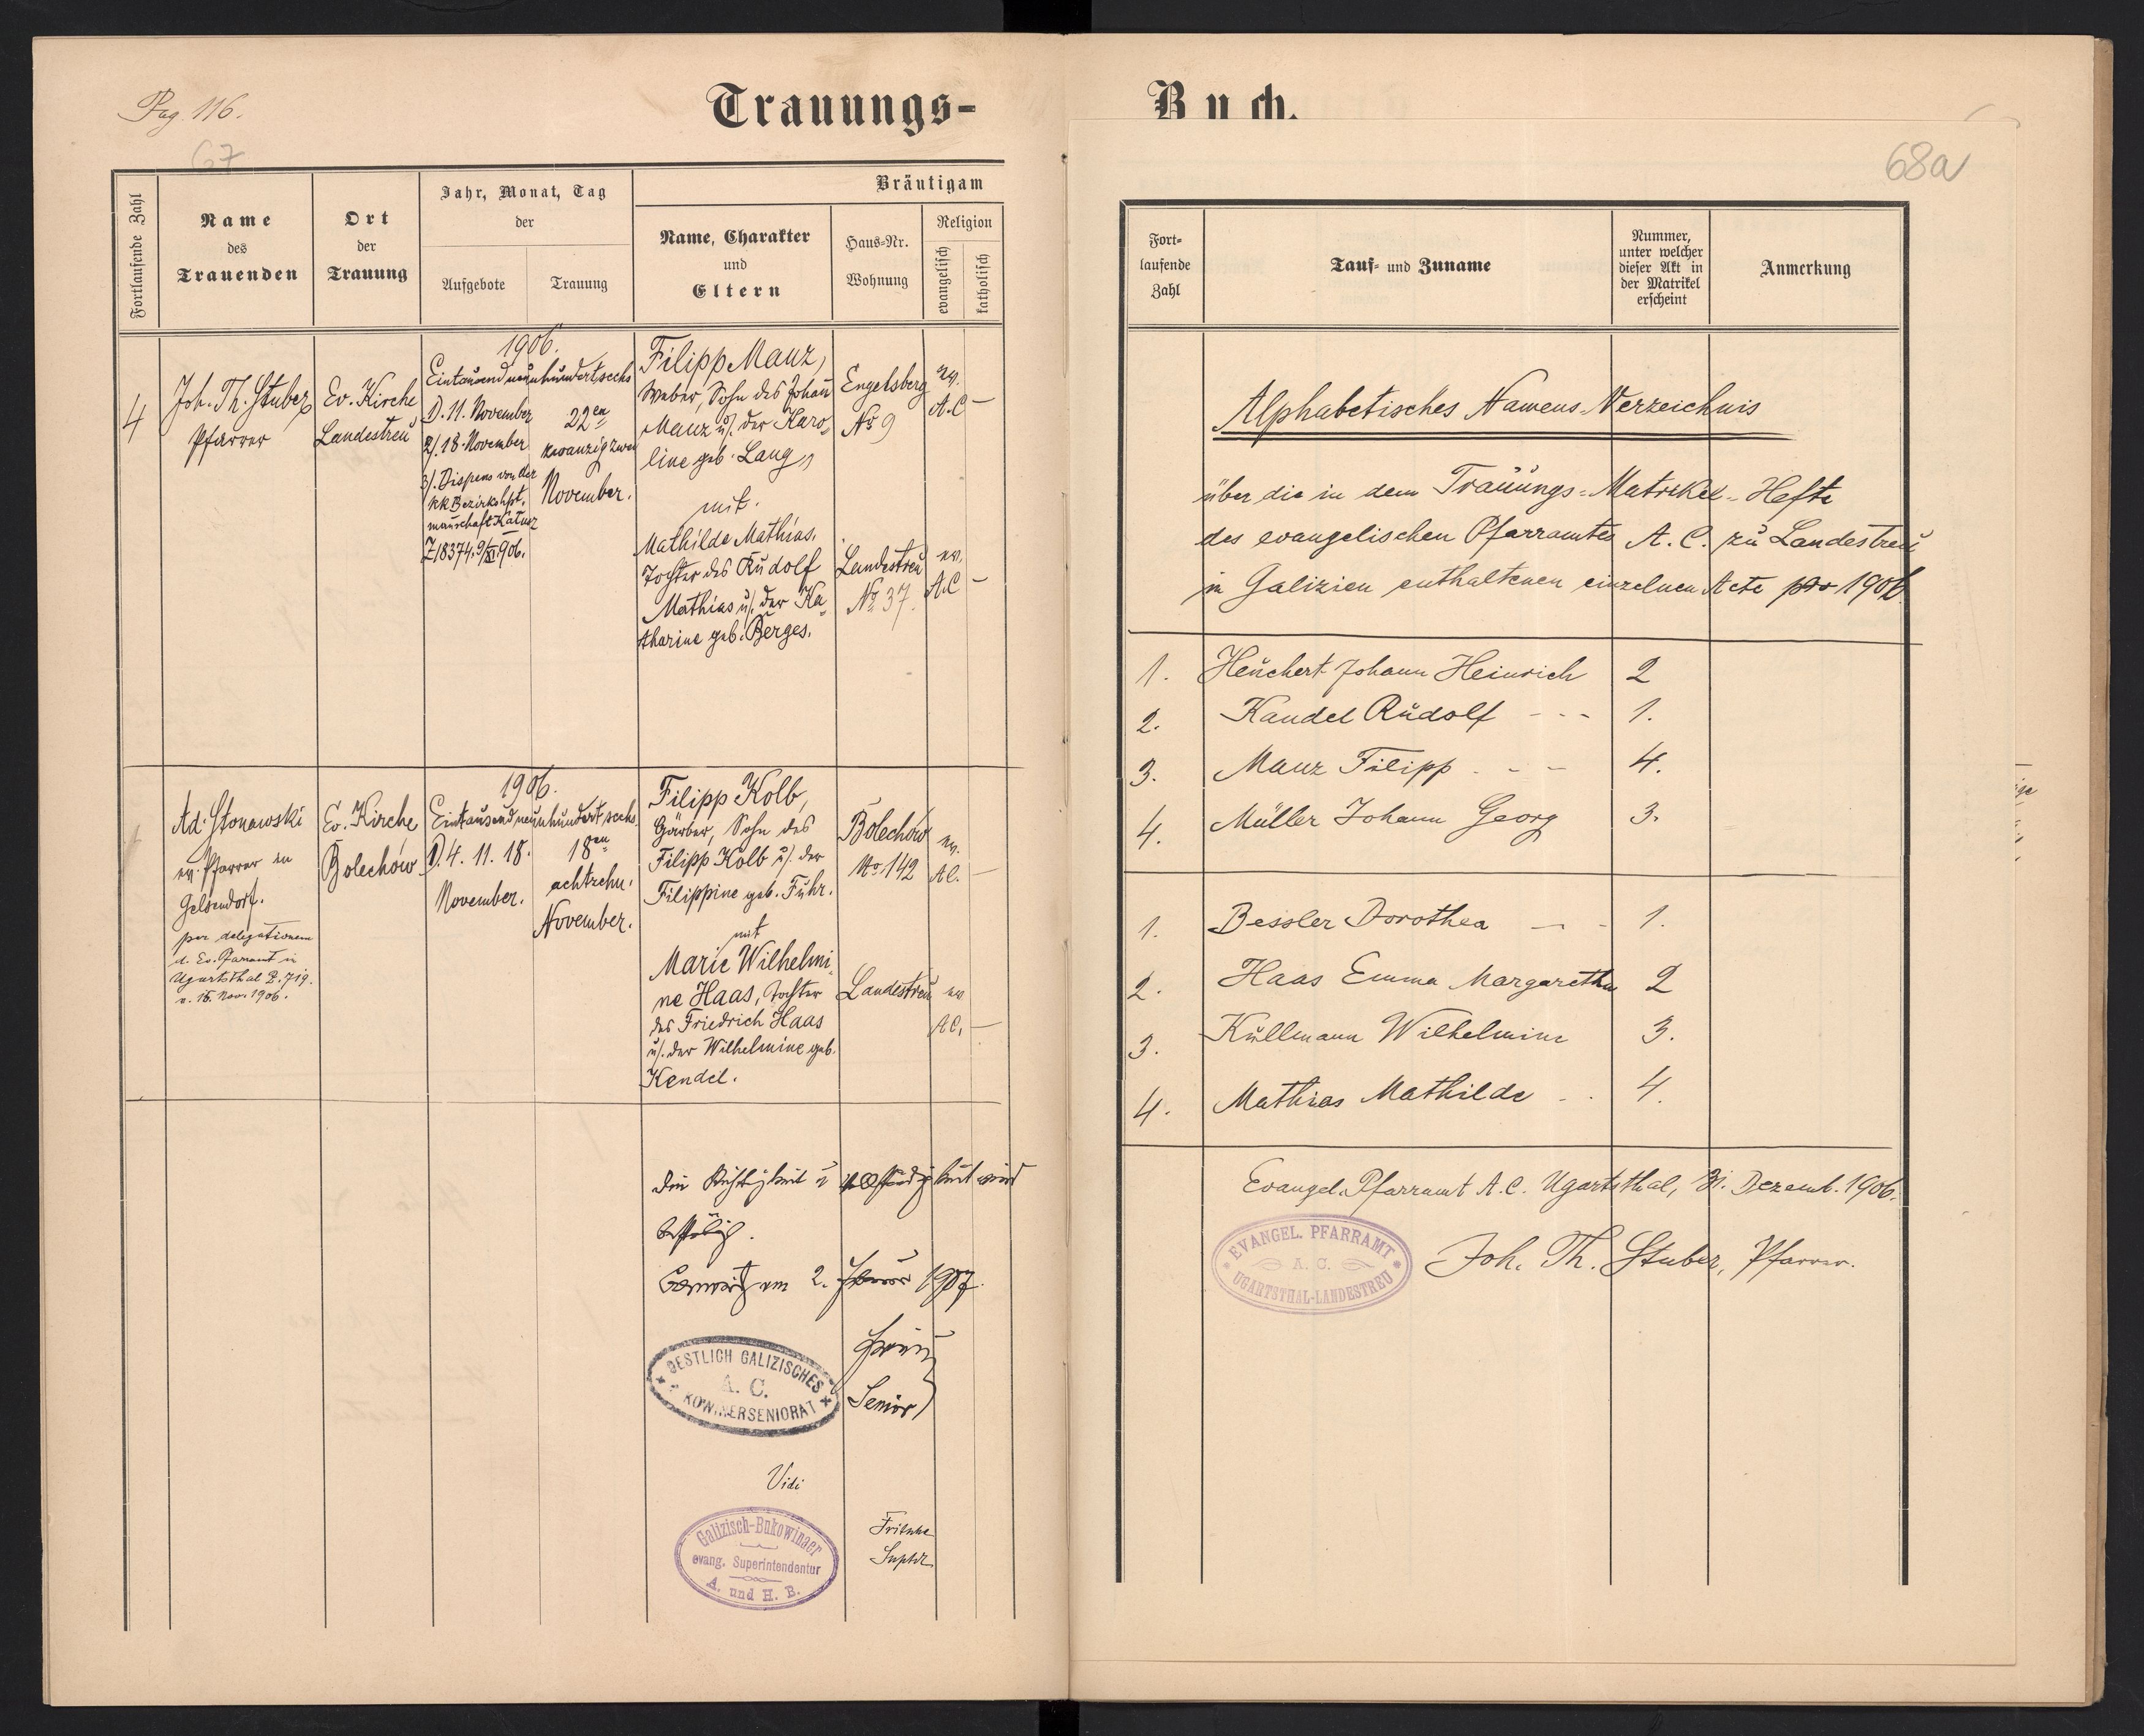 Pag. 116.
67
Trauungs-
Fortlaufende Zahl
Name
des
Trauenden
Ort
der
Trauung
Jahr, Monat, Tag
der
Aufgebote
Trauung
Bräutigam
Name, Charakter
und
Eltern
Haus-Nr.
Wohnung
Religion
evangelisch
katholisch
4
Joh. Th. Stuber
Pfarrer
Ev. Kirche
Landestreu
1906.
Eintausendneunhundertsechs
1). 11. November
2). 18. November
3). Dispens von der
kk Bezirkshpt.
mannschaft Kałusz
Z 18374. 9/XI 906.
22en
zwanzig zwei
November.
Filipp Manz,
Weber, Sohn des Johann
Manz u/. der Karo-
line geb. Lang,
mit.
Mathilde Mathias.
Tochter des Rudolf
Mathias u/. der Ka-
tharine geb. Berges.
Engelsberg
No 9
ev.
A.C –
Landestreu
No 37.
ev.
A.C –
Ad. Stonawski
ev. Pfarrer in
Gelsendorf.
per delegationem
d. Ev. Pfarramt in
Ugartsthal Z. 719.
v. 16. Nov. 1906.
Ev. Kirche
Bolechów
1906.
Eintausendneunhundertsechs
1). 4. 11. 18.
November.
18en
achtzehn.
November.
Filipp Kolb,
Gärber, Sohn des
Filipp Kolb u/. der
Filippine geb. Fuhr.
mit
Marie Wilhelmi-
ne Haas, Tochter
des Friedrich Haas
u/. der Wilhelmine geb.
Kendel.
Bolechów
No 142
ev.
AC. –
Landestreu
ev
AC. –
Die Richtigkeit u Vollständigkeit wird
bestätigt.
am 2. Januar 1907.
Senior
OESTLICH GALIZISCHES
A. C.
Vidi
Galizisch-Bukowinaer
evang. Superintendentur
A. und H. B.
Fritsche
Suptdt.
Buch.
68a
Fort-
laufende
Zahl
Tauf- und Zuname
Nummer,
unter welcher
dieser Akt in
der Matrikel
erscheint
Anmerkung
Alphabetisches Namens-Verzeichnis
über die in dem Trauungs-Matrikel-Hefte
des evangelischen Pfarramtes A. C. zu Landestreu
in Galizien enthaltenen einzelnen Acte pro 1906.
1. Heuchert Johann Heinrich 2
2. Kandel Rudolf - - - 1.
3. Manz Filipp - - - 4.
4. Müller Johann Georg 3.
1. Bessler Dorothea — - - 1.
2. Haas Emma Margaretha 2
3. Kullmann Wilhelmine 3.
4. Mathias Mathilde - - 4.
Evangel. Pfarramt A.C. Ugartsthal, 31. Dezemb. 1906.
EVANGEL. PFARRAMT
A. C.
UGARTSTHAL-LANDESTREU
Joh. Th. Stuber, Pfarrer.